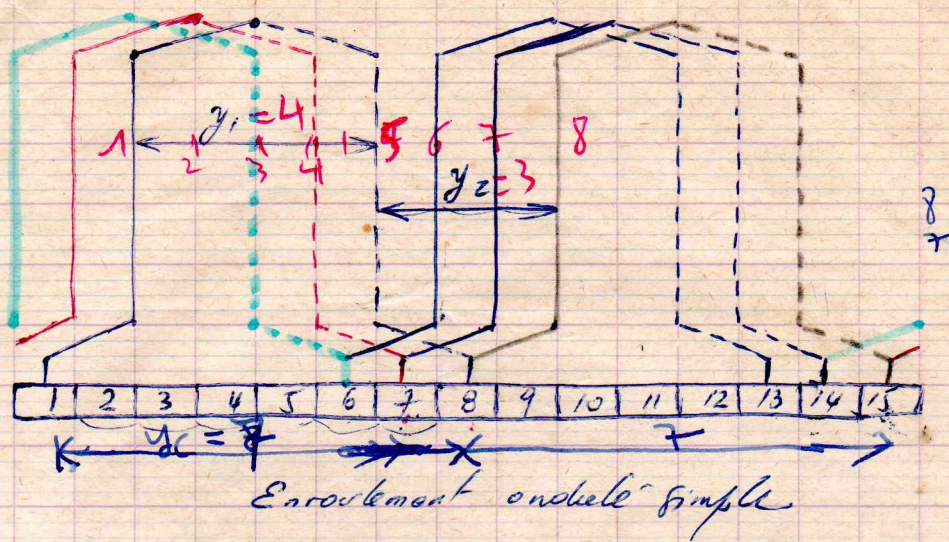 y₁ = 4
1 2 3 4 5 6 7 8
y₂ = 3
8
7
1 2 3 4 5 6 7 8 9 10 11 12 13 14 15
yc = 7
7
Enroulement ondulé simple